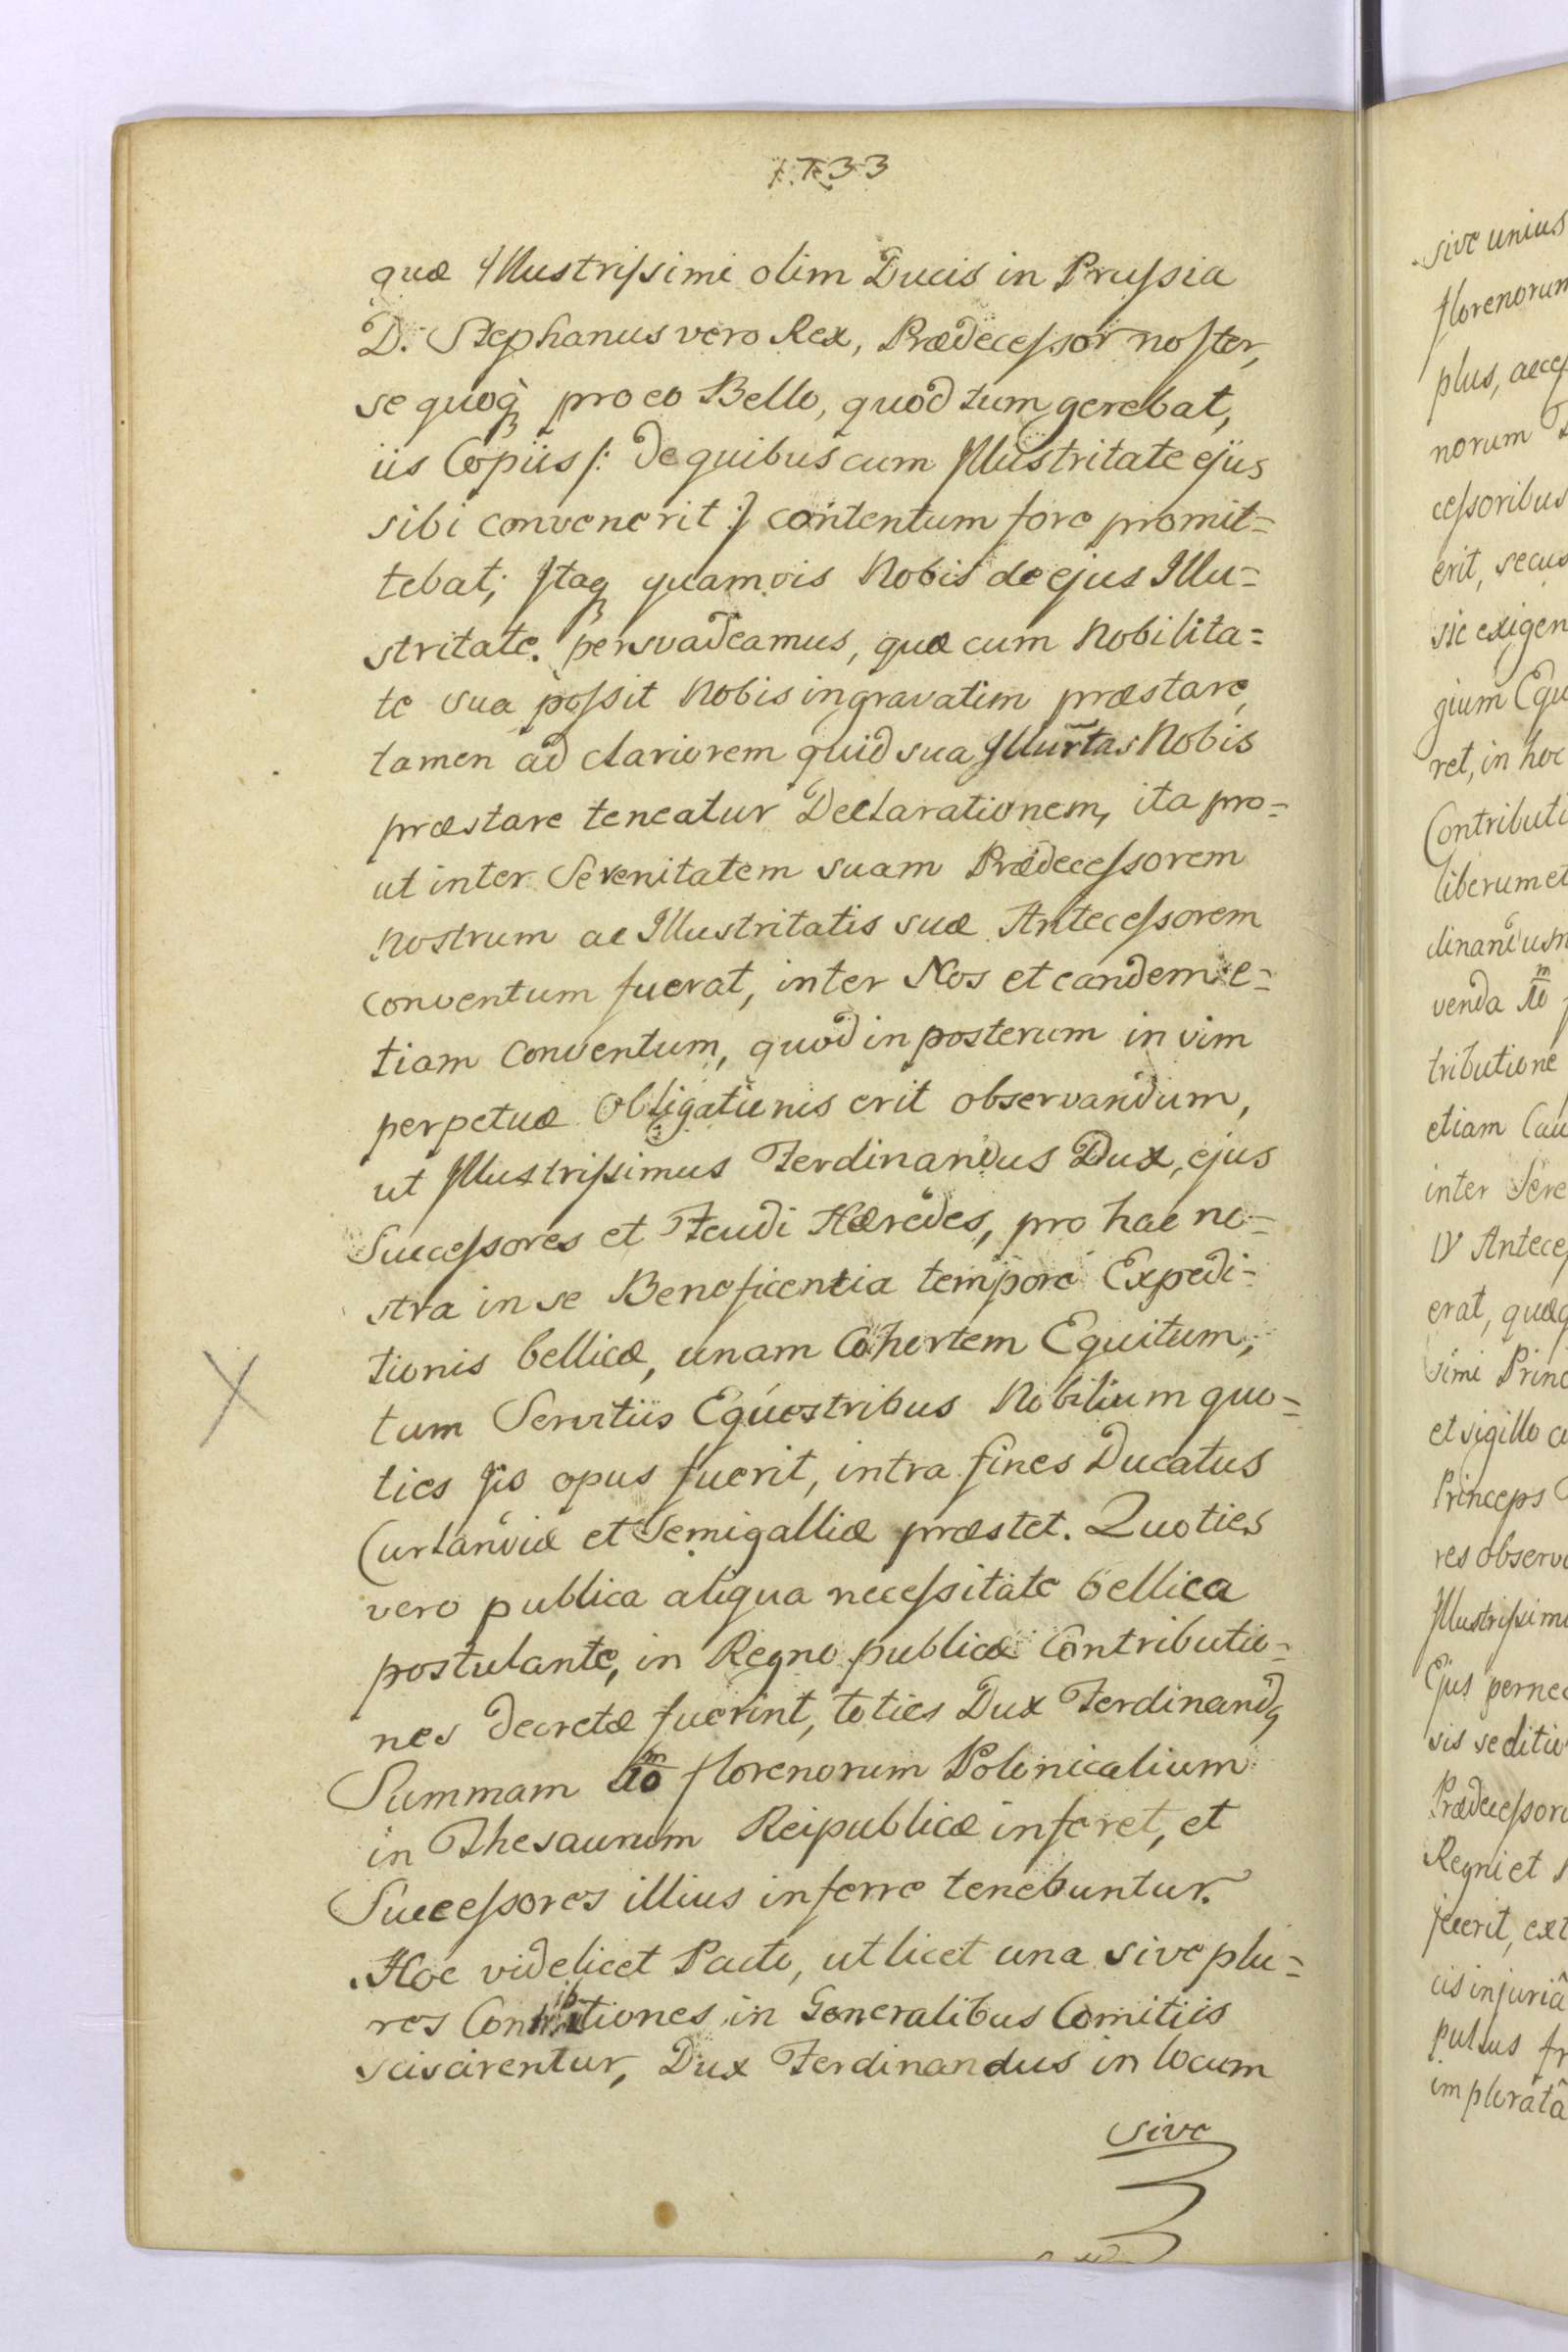 1733
quæ Illustrissimi olim Ducis in Prussia
D. Stephanus vero Rex, Prædecessor noster,
se quoq̀ pro eo Bello, quod tum gerebat,
iis Copiis /: de quibus cum Illustritate ejus
sibi convenerit :/ contentum fore promit=
tebat; Itaq quamvis Nobis de ejus Illu=
stritate persvadeamus, quæ cum Nobilita=
te sua possit Nobis ingravatim præstare,
tamen ad clariorem quid sua Illurtas Nobis
præstare teneatur Declarationem, ita pro=
ut inter Serenitatem suam Prædecessorem
Nostrum ac Illustritatis suæ Antecessorem
conventum fuerat, inter Nos et eandem e=
tiam conventum, quod in posterum in vim
perpetuæ Obligationis erit observandum,
ut Illustrissimus Ferdinandus Dux, ejus
Successores et Feudi Hæredes, pro hac no=
stra in se Beneficentia tempore Expedi=
tionis bellicæ, unam Cohortem Equitum,
tum Servitiis Equestribus Nobilium quo=
ties Iis opus fuerit, intra fines Ducatus
Curlandiæ et Semigalliæ præstet. Quoties
vero publica aliqua necessitate bellica
postulante, in Regno publicæ Contributio=
nes decretæ fuerint, toties Dux Ferdinandq
Summam 10 m florenorum Polonicalium
in Thesaurum Reipublicæ inferet, et
Successores illius inferre tenebuntur.
Hoc videlicet Pacto, ut licet una sive plu=
res Contributiones in Generalibus Comitiis
sciscirentur, Dux Ferdinandus in locum
sive
sive unius
florenorum
plus, acces
norum
cessoribus
erit, secus
sic exigen
gium Equ
ret, in hoc
Contributi
liberum et
dinandus
venda 10 m
tributione
etiam Cau
inter Sere
IV Antece
erat, quæq
simi Princ
et sigillo
Princeps
res observ
Illustrissim
Ejus perne
sis seditio
Prædecessor
Regni et
jecerit, ext
cis injuriâ
pulsus fr
imploratâ